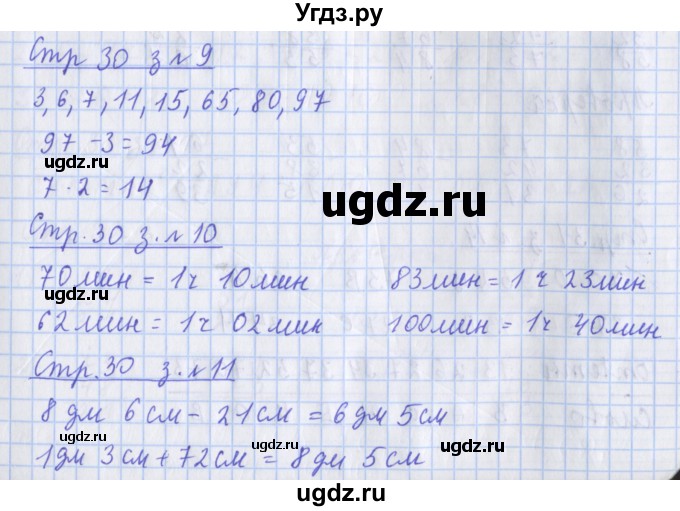 Угдз.ру
Стр 30 з №9
3, 6, 7, 11, 15, 65, 80, 97
97 - 3 = 94
ugdz.ru
ugdz.ru
7 · 2 = 14
ugdz.ru
Стр. 30 з. №10
70мин = 1ч 10мин 83мин = 1ч 23мин
ugdz.ru
ugdz.ru
62мин = 1ч 02мин 100мин = 1ч 40мин
Стр. 30 з. №11
ugdz.ru
8 дм 6 см - 21 см = 6 дм 5 см
ugdz.ru
ugdz.ru
1дм 3см + 72см = 8 дм 5см
ugdz.ru
ugdz.ru